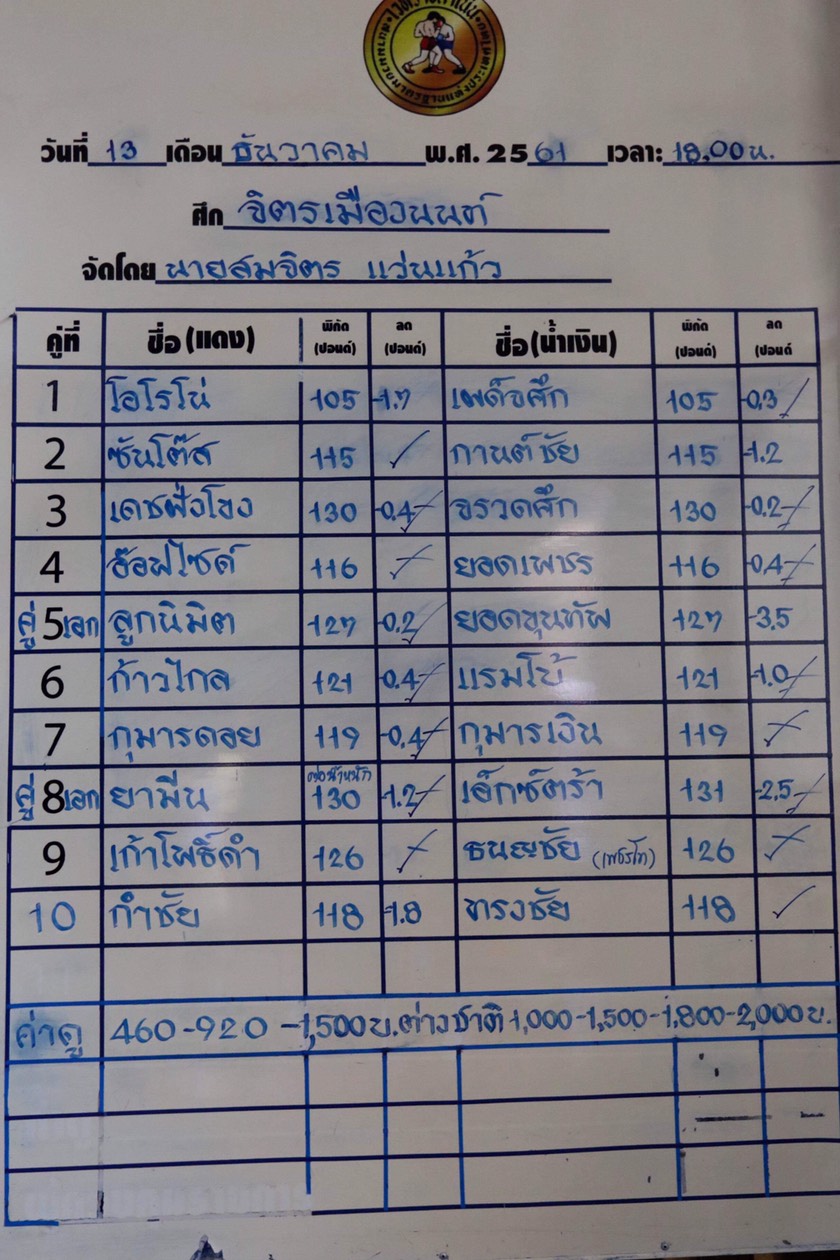 เวทีราชดำเนิน
สนามมวยมาตรฐานแห่งประเทศไทย
วันที่ 13 เดือน ธันวาคม พ.ศ. 2561 เวลา: 18,00 น.
ศึก จิตรเมืองนนท์
จัดโดย นายสมจิตร แว่นแก้ว
คู่ที่ ชื่อ (แดง) พิกัด (ปอนด์) ลด (ปอนด์) ชื่อ (น้ำเงิน) พิกัด (ปอนด์) ลด (ปอนด์
1 โอโรโน่ 105 -1.7 เผด็จศึก 105 -0.3 /
2 ซันโต๊ส 115 ✓ กานต์ชัย 115 -1.2
3 เดชฝั่งโขง 130 -0.4 จรวดศึก 130 -0.2
4 อ๊อฟไซด์ 116 ยอดเพชร 116 -0.4
คู่ 5 เอก ลูกนิมิต 127 -0.2 ยอดขุนทัพ 127 -3.5
6 ก้าวไกล 121 -0.4 แรมโบ้ 121 -1.0
7 กุมารดอย 119 -0.4 กุมารเงิน 119
คู่ 8 เอก ยามีน ต่อน้ำหนัก 130 -1.2 เอ็กซ์ตร้า 131 -2.5
9 เก้าโพธิ์ดำ 126 ธนญชัย 126
10 กำชัย 118 -1.8 ทรงชัย 118 ✓
ค่าดู 460-920 -1,500 บ. ต่างชาติ 1,000-1,500-1,800-2,000 บ.